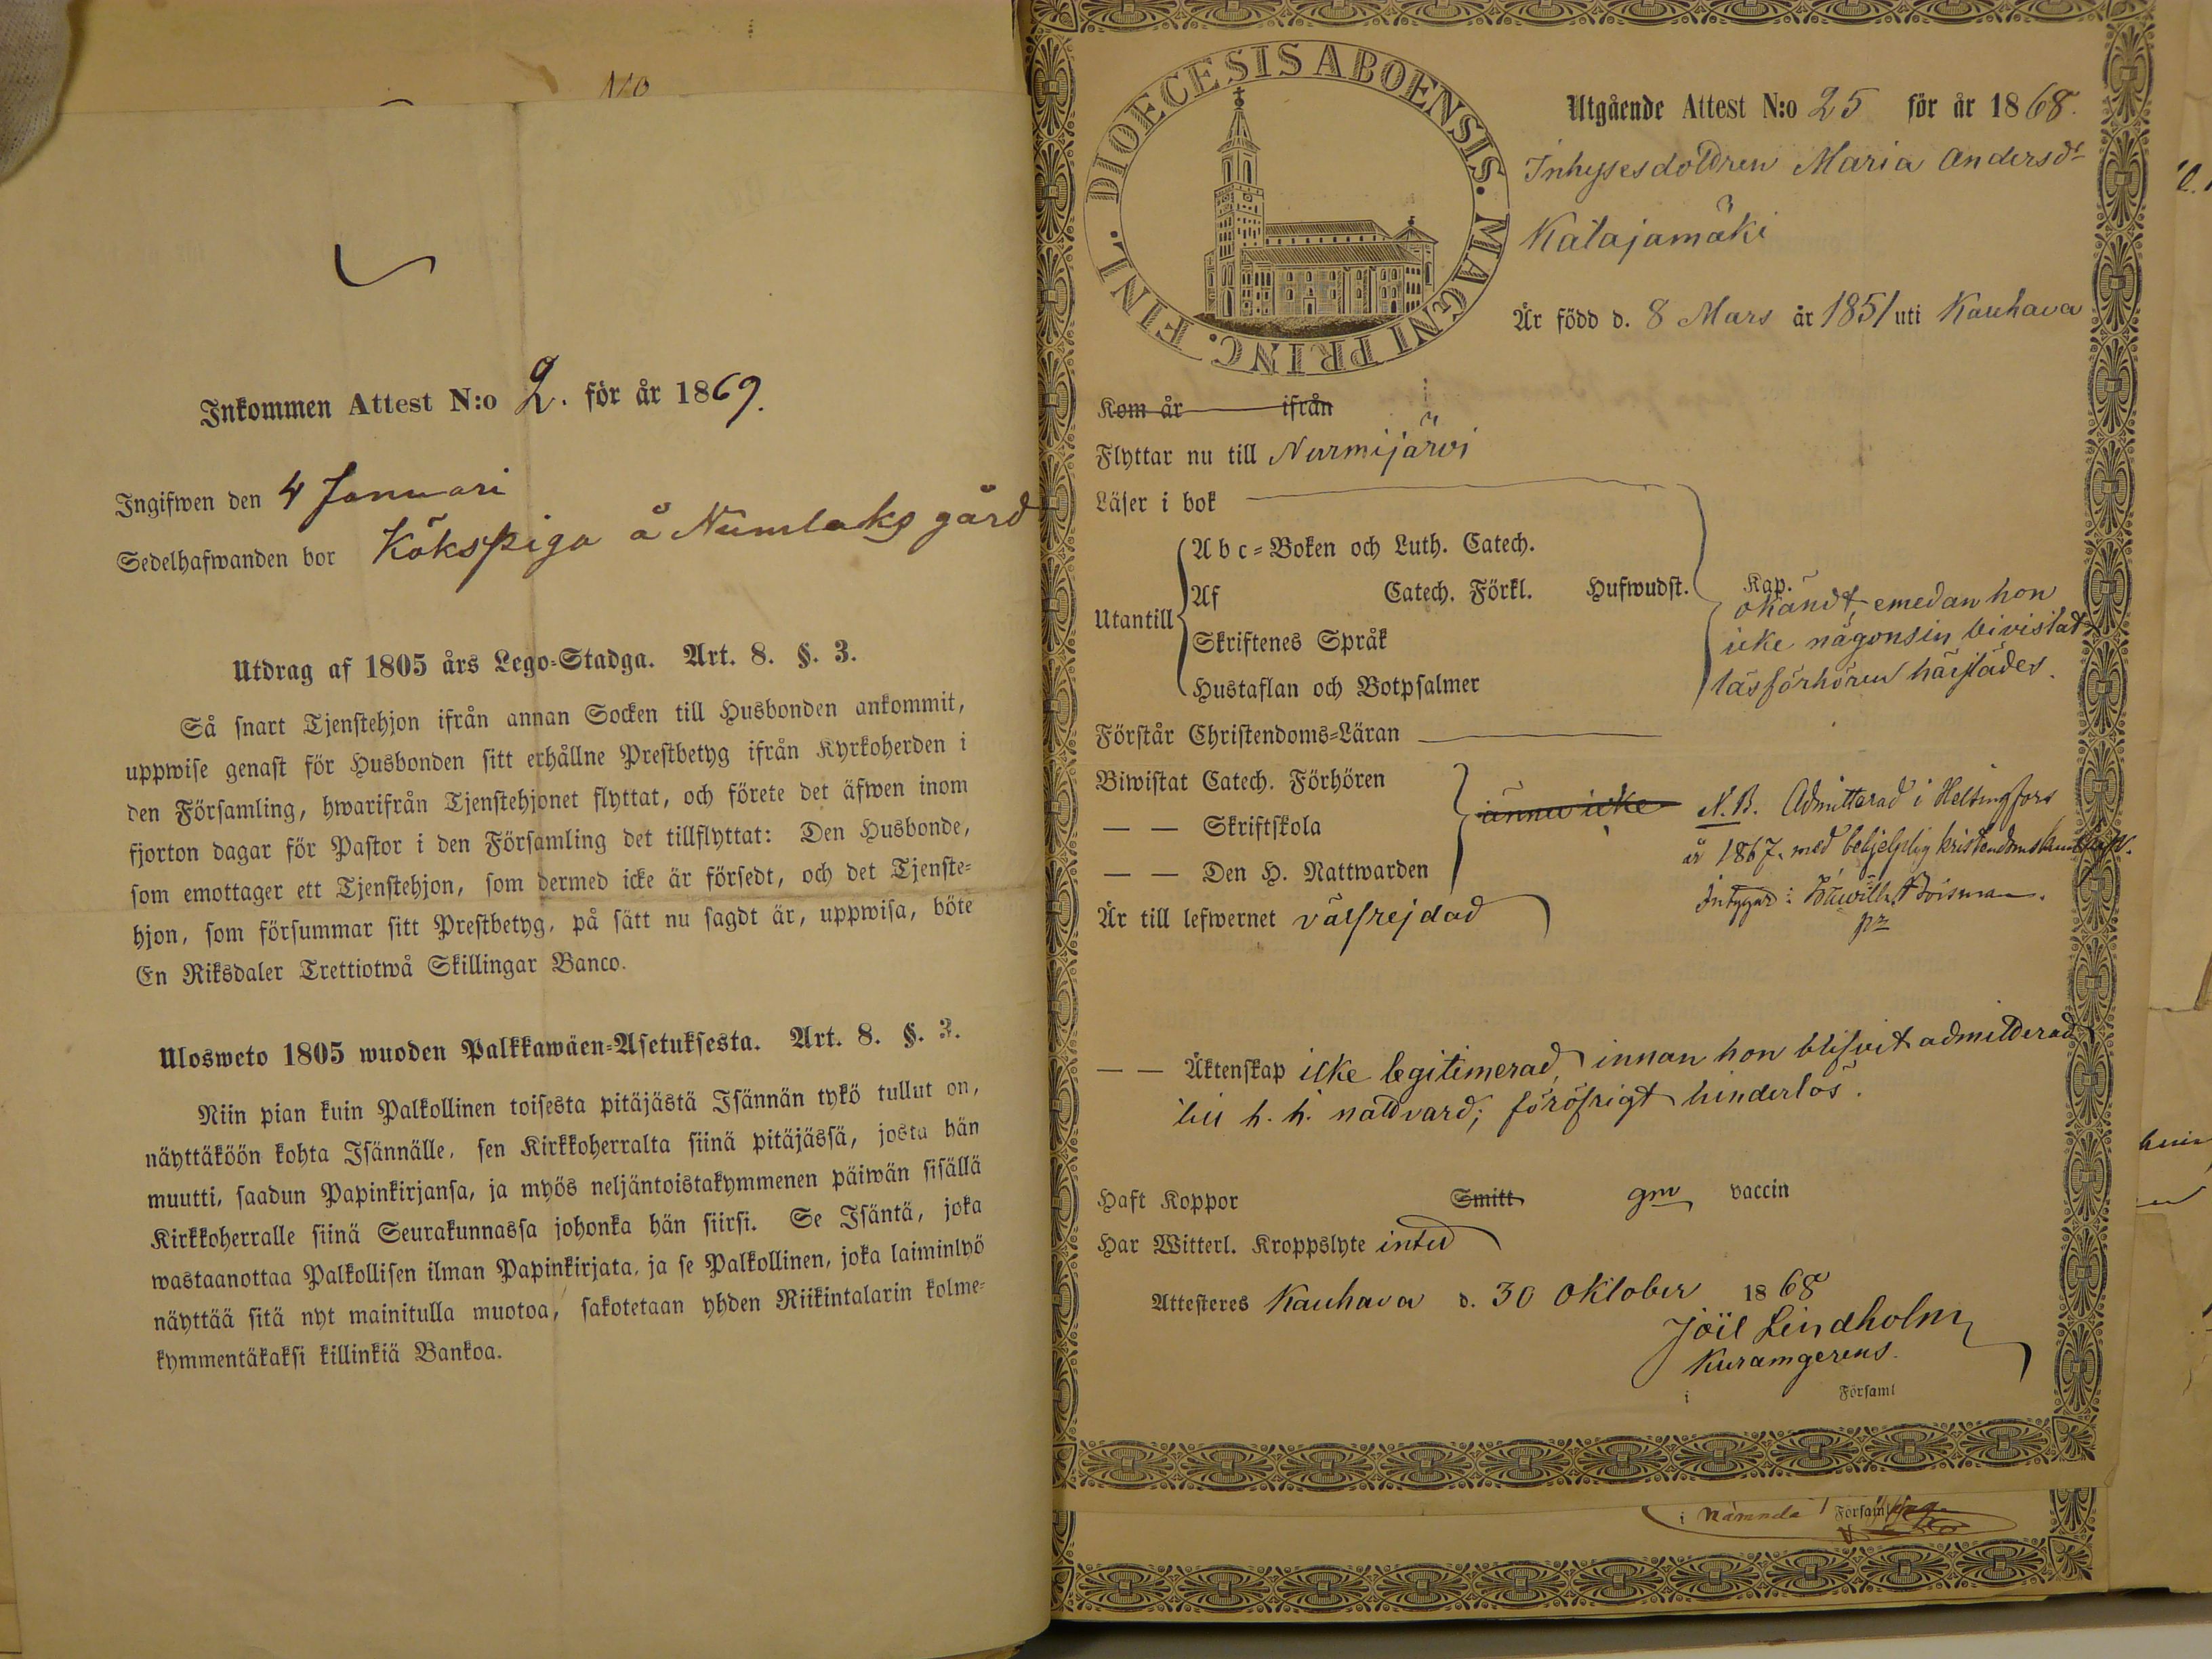 No
Inkommen Attest N:o 2. för år 1869.
Ingifwen den 4 Januari
Sedelhafwanden bor Kökspiga å Numlaks gård
Utdrag af 1805 års Lego-Stadga. Art. 8. §. 3.
Så snart Tjenstehjon ifrån annan Socken till Husbonden ankommit,
uppwise genast för Husbonden sitt erhållne Prestbetyg ifrån Kyrkoherden i
den Församling, hwarifrån Tjenstehjonet flyttat, och förete det äfwen inom
fjorton dagar för Pastor i den Församling det tillflyttat: Den Husbonde,
som emottager ett Tjenstehjon, som dermed icke är försedt, och det Tjenste-
hjon, som försummar sitt Prestbetyg, på sätt nu sagdt är, uppwisa, böte
En Riksdaler Trettiotwå Skillingar Banco.
Ulosweto 1805 wuoden Palkkawäen-Asetuksesta. Art. 8. §. 3.
Niin pian kuin Palkollinen toisesta pitäjästä Isännän tykö tullut on,
näyttäköön kohta Isännälle, sen Kirkkoherralta siinä pitäjässä, josta hän
muutti, saadun Papinkirjansa, ja myös neljäntoistakymmenen päiwän sisällä
Kirkkoherralle siinä Seurakunnassa johonka hän siirsi. Se Isäntä, joka
wastaanottaa Palkollisen ilman Papinkirjata, ja se Palkollinen, joka laiminlyö
näyttää sitä nyt mainitulla muotoa, sakotetaan yhden Riikintalarin kolme-
kymmentäkaksi killinkiä Bankoa.
DIOECESIS ABOENSIS. MAGNI PRINC. FINL.
Utgående Attest N:o 25 för år 1868.
Inhysesdottren Maria Andersdr
Katajamäki
Är född d. 8 Mars år 1851 uti Kauhava
Kom år ifrån
Flyttar nu till Nurmijärvi
Läser i bok
Utantill
Abc-Boken och Luth. Catech.
Af Catech. Förkl. Hufwudst. Kap.
Skriftenes Språk
Hustaflan och Botpsalmer
okändt, emedan hon
icke någonsin bivistat
läsförhören härstädes.
Förstår Christendoms-Läran
Biwistat Catech. Förhören
— — Skriftskola
— — Den H. Nattwarden
ännu icke
N.B. Admitterad i Helsingfors
år 1867. med behjelplig kristendomskunskap.
Intygar:
Är till lefwernet välfrejdad
— — Äktenskap icke legitimerad, innan hon blifvit admitterad
till h. h. nattvard; föröfrigt hinderlös.
Haft Koppor Smitt gm vaccin
Har Witterl. Kroppslyte intet
Attesteres Kauhava d. 30 Oktober 1868
Joël Lindholm
Kuramgerens.
i Församl
i Nämnde Församl